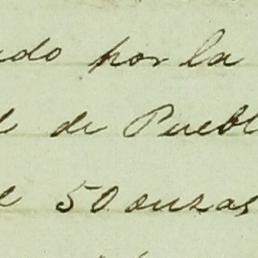 ado por la
l de Puebl
e 50 onzas